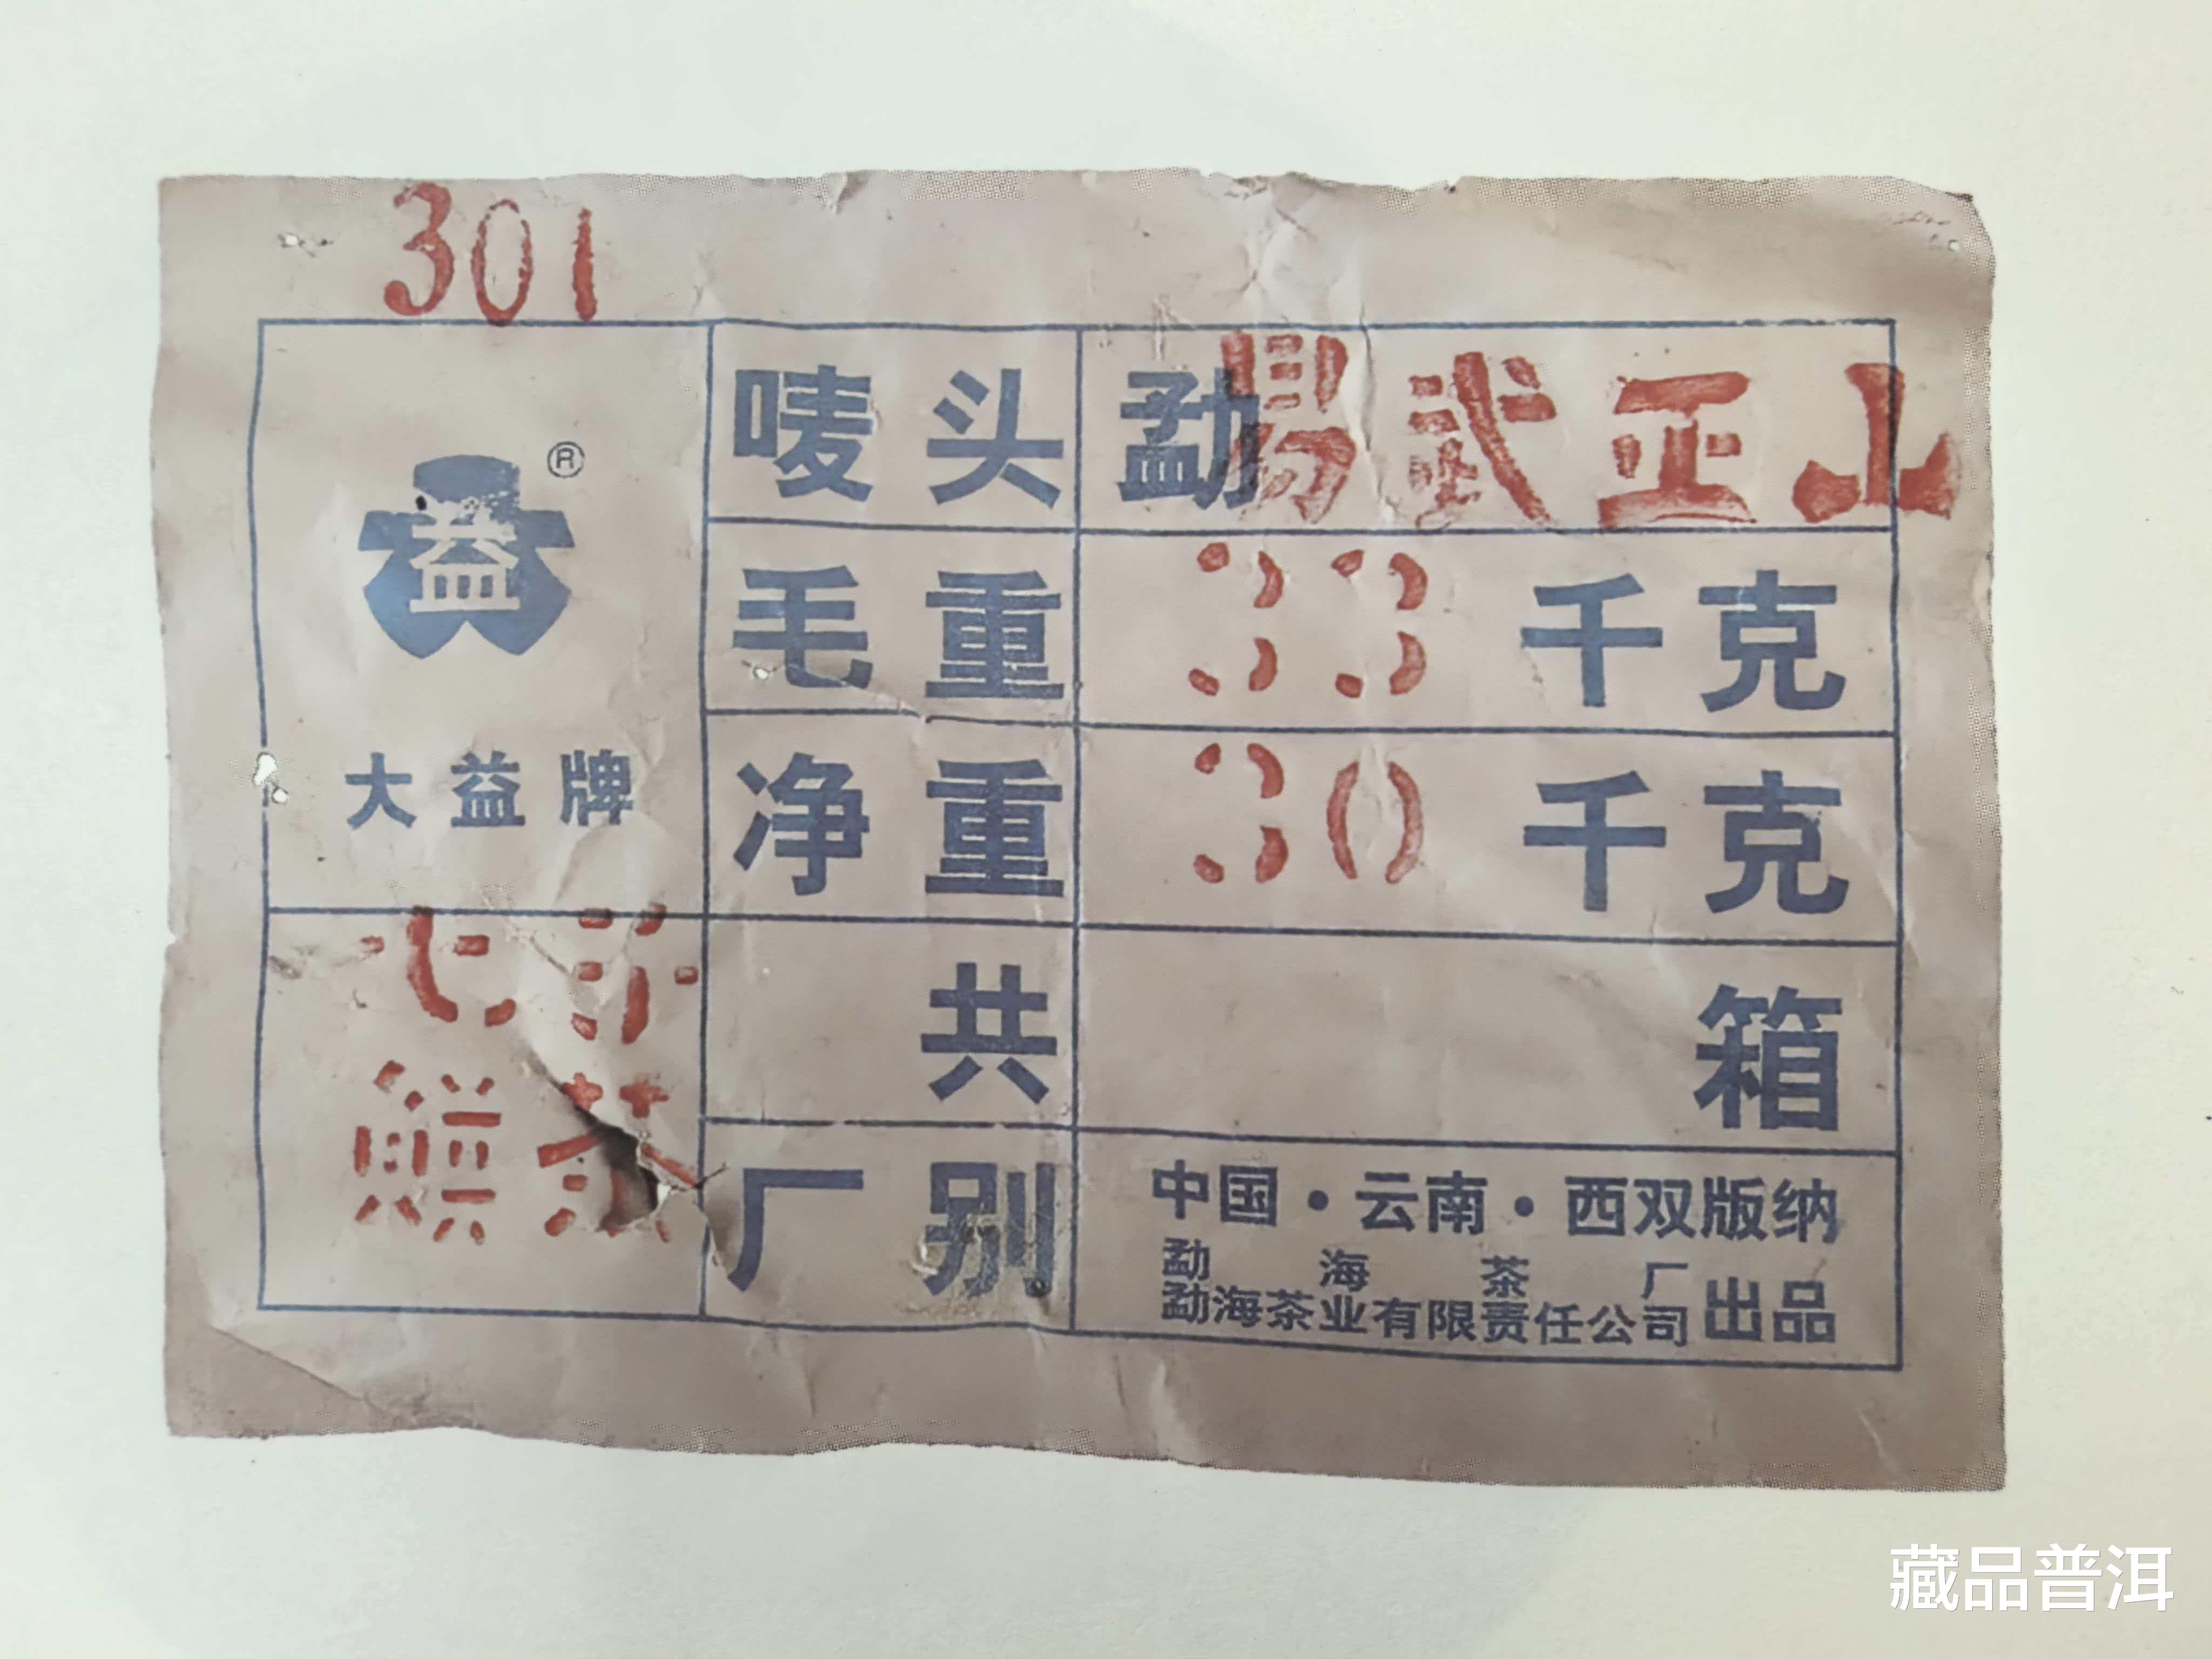 301
益®
大益牌
七子
餅茶
唛头 勐易武正山
毛重 33千克
净重 30千克
共 箱
厂别 中国·云南·西双版纳
勐海茶厂
勐海茶业有限责任公司 出品
藏品普洱